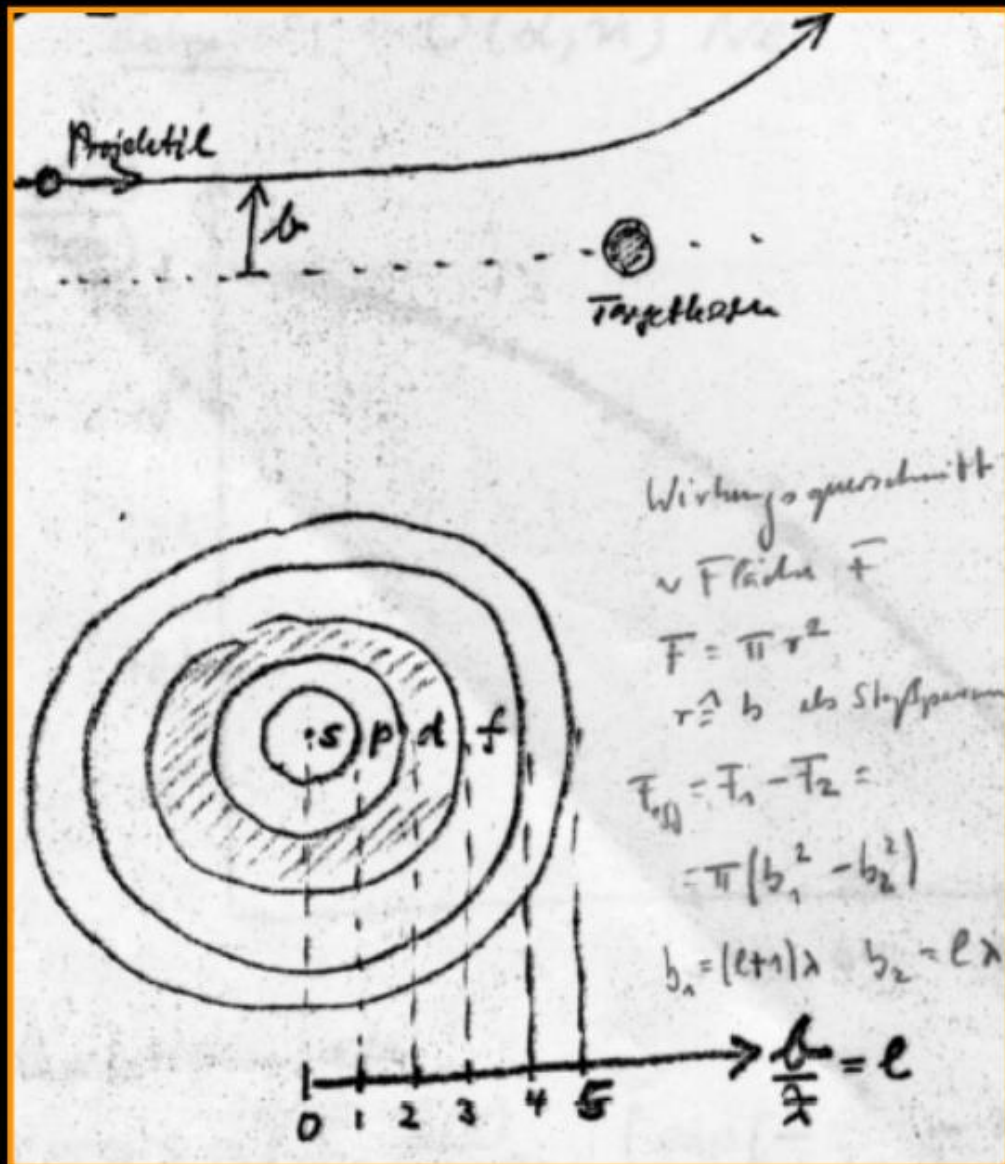 Projektil
b
Targetkern
Wirkungsquerschnitt
~ Fläche F
F = π r²
r ≙ b als Stoßparam
= F₁ - F₂ =
= π(b₁² - b₂²)
b₁ = (l+1)λ b₂ = lλ
s p d f
0 1 2 3 4 5
b/ƛ = l